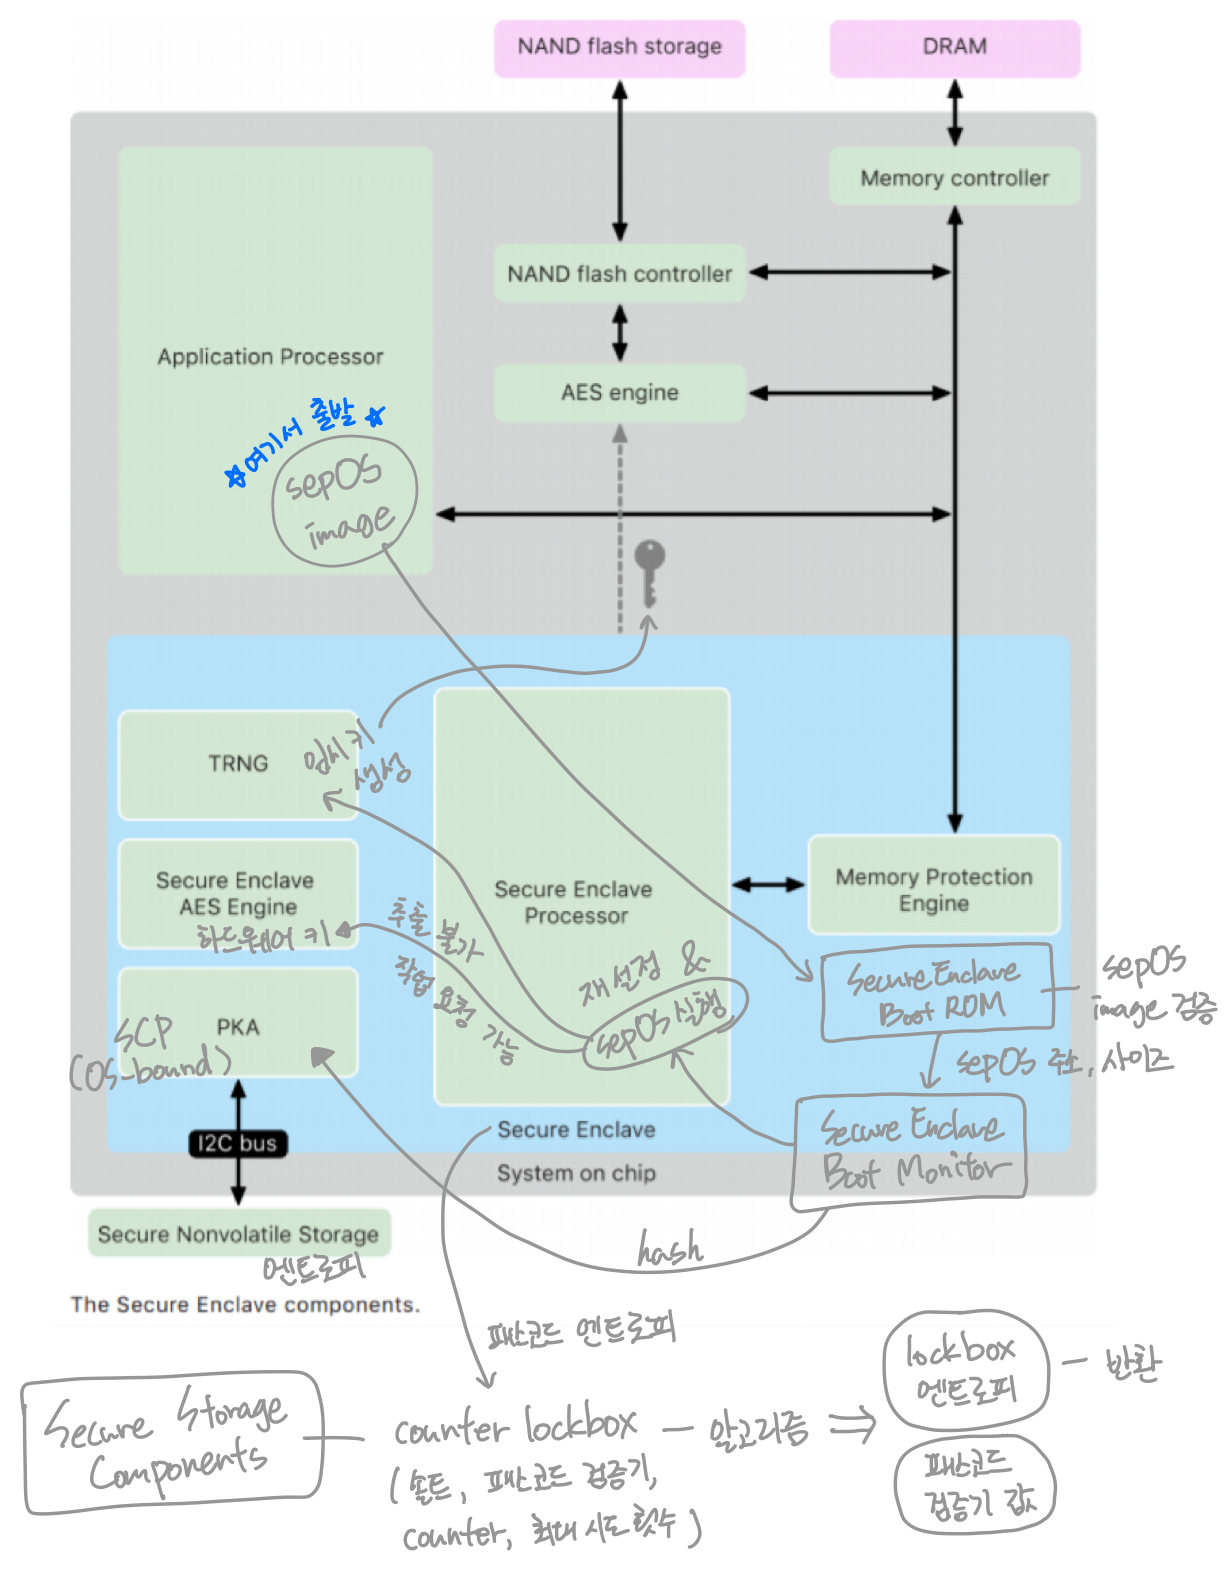 NAND flash storage
DRAM
Memory controller
NAND flash controller
Application Processor
AES engine
☆여기서 출발☆
sepOS
image
TRNG
임시키
생성
Secure Enclave
AES Engine
하드웨어 키
추출 불가
작업 요청 가능
Secure Enclave
Processor
재설정 &
sepOS 실행
Memory Protection
Engine
Secure Enclave
Boot ROM
sepOS
image 검증
PKA
SCP
(OS-bound)
sepOS 주소, 사이즈
Secure Enclave
Boot Monitor
I2C bus
Secure Enclave
System on chip
Secure Nonvolatile Storage
엔트로피
hash
The Secure Enclave components.
패스코드 엔트로피
lockbox
엔트로피
반환
Secure Storage
Components
counter lockbox
알고리즘
(솔트, 패스코드 검증기,
counter, 최대 시도 횟수)
패스코드
검증기 값